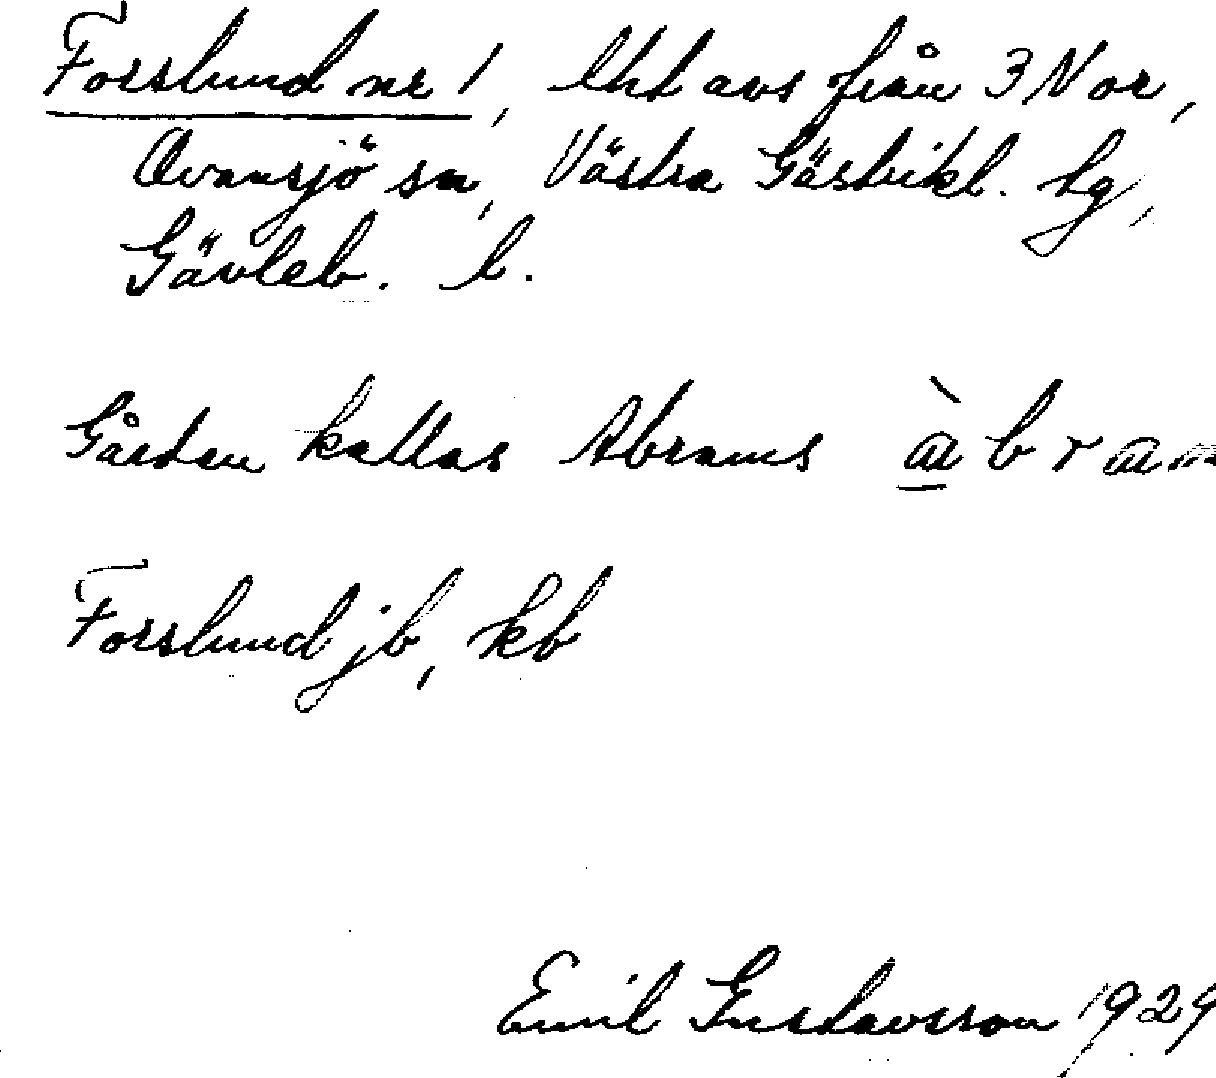 Forslund nr 1, lht avs från 3 Nor,
Ovansjö sn, Västra Gästrikl. tg,
Gävleb. l.
Gården kallas Abrams àbram
Forslund jb, kb
Emil Gustavsson 1929